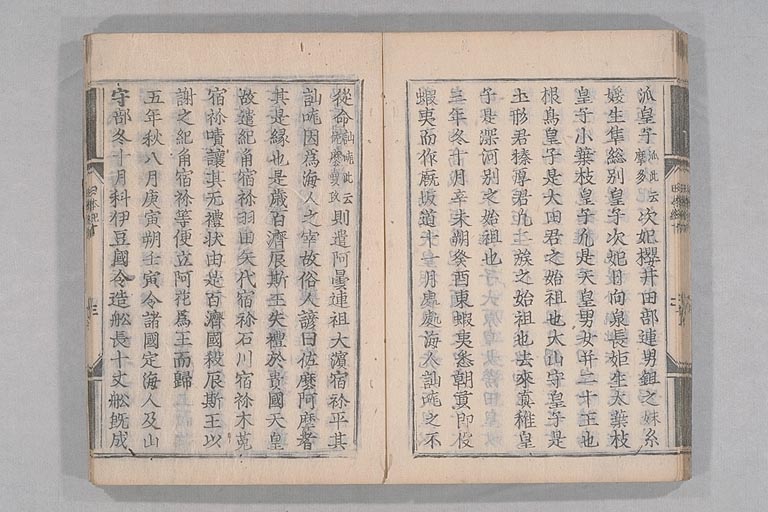 派皇子派此云摩多次妃櫻井田部連男鉏之妹糸
媛生隼総別皇子次妃日向泉長姫生大葉枝
皇子小葉枝皇子凢是天皇男女并二十王也
根鳥皇子是大田君之始祖也大山守皇子是
土形君榛原君凢二族之始祖也去來真稚皇
子是深河別之始祖也
三年冬十月辛未朔癸酉東蝦夷悉朝貢即役
蝦夷而作厩坂道十一月處處海人訕哤之不
從命訕哤此云則遣阿曇連祖大濱宿祢平其
訕哤因為海人之宰故俗人諺曰佐麼阿摩者
其是縁也是歳百濟辰斯王失禮於貴國天皇
故遣紀角宿祢羽田矢代宿祢石川宿祢木菟
宿祢嘖讓其无禮状由是百濟國殺辰斯王以
謝之紀角宿祢等便立阿花為王而歸
五年秋八月庚寅朔壬寅令諸國定海人及山
守部冬十月科伊豆國令造舩長十丈舩既成